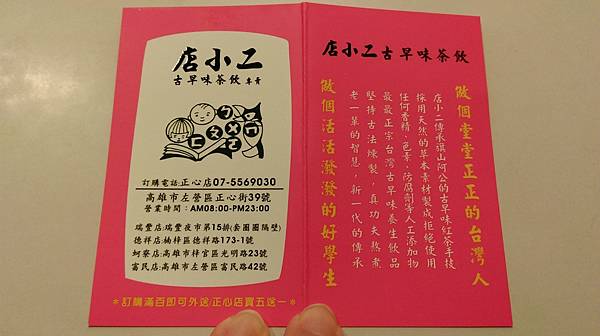 店小二
古早味茶飲 專賣
ㄅ
ㄨ
ㄈ
訂購電話:正心店07-5569030
高雄市左營區正心街39號
營業時間：AM08:00-PM23:00
瑞豐店:瑞豐夜市第15排(套圈圈隔壁)
德祥店:楠梓區德祥路173-1號
蚵寮店:高雄市梓官區光明路23號
富民店:高雄市左營區富民路42號
*訂購滿百即可外送/正心店買五送一*
店小二古早味茶飲
做個堂堂正正的台灣人
店小二傳承旗山阿公的古早味紅茶手技
採用天然的草本素材製成拒絕使用
任何香精、色素、防腐劑等人工添加物
最最正宗台灣古早味養生飲品
堅持古法煉製，真功夫熬煮
老一輩的智慧，新一代的傳承
做個活活潑潑的好學生